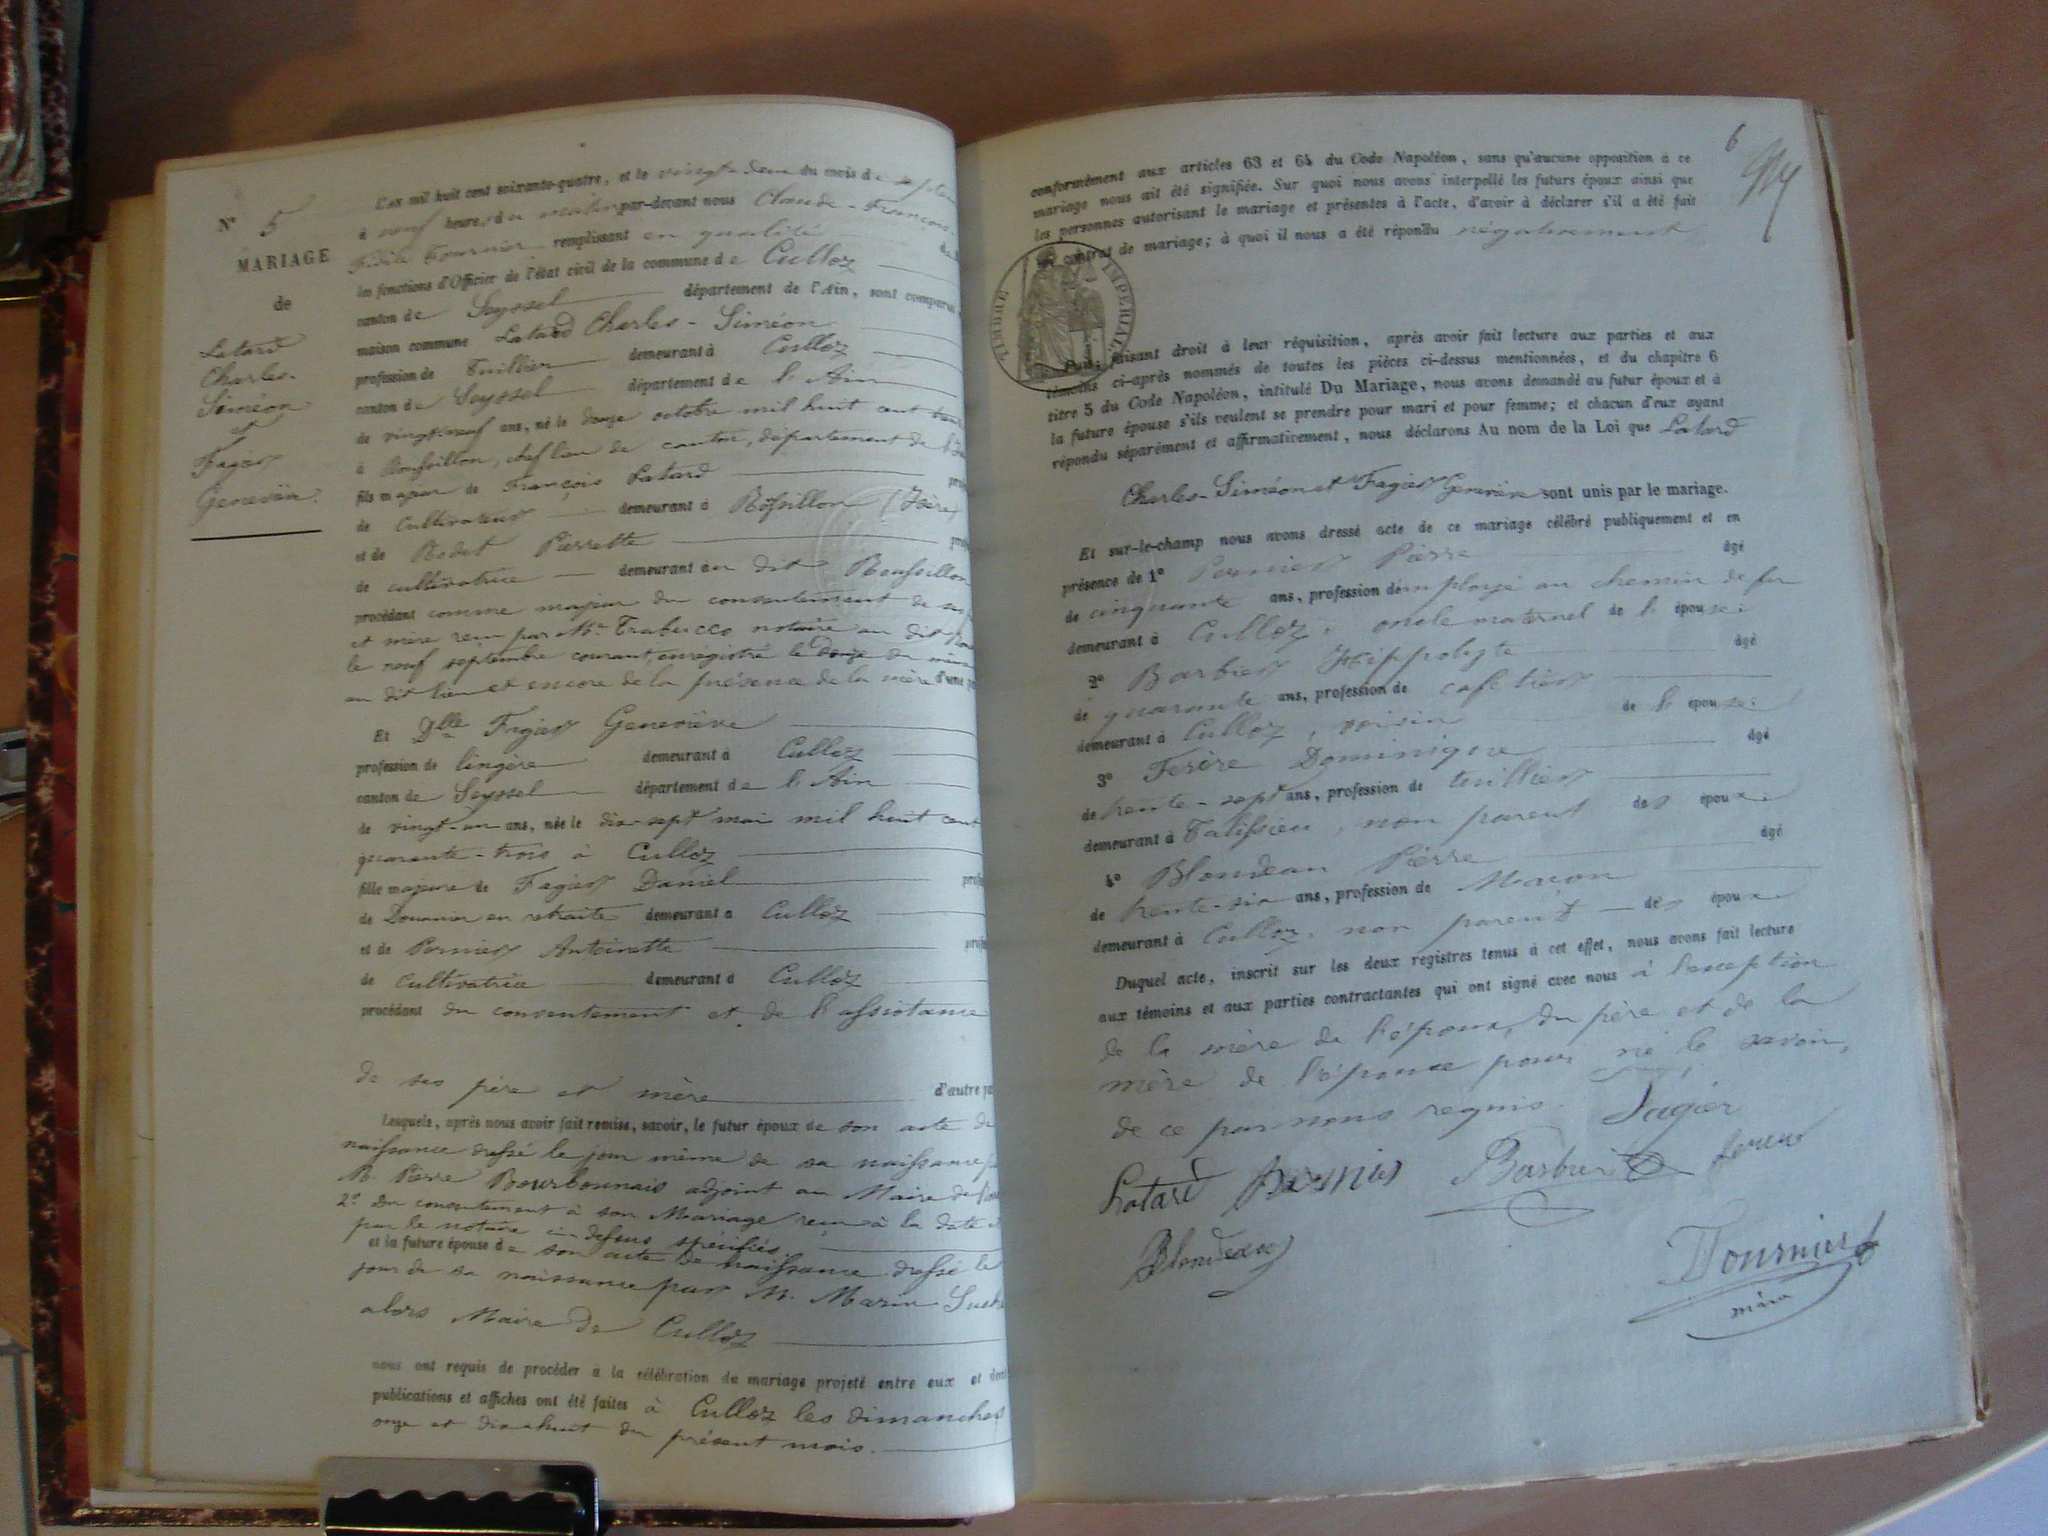 N° 5
MARIAGE
de
Latard
Charles-
Siméon
et
Fagier
Geneviève.
L'an mil huit cent soixante-quatre, et le vingt-deux du mois de
à neuf heures du matin par-devant nous Claude-François
Fournier remplissant en qualité
les fonctions d'Officier de l'état civil de la commune de Culloz
canton de Seyssel département de l'Ain, sont comparus
maison commune Latard Charles-Siméon
profession de Tuillier demeurant à Culloz
canton de Seyssel département de l'Ain
de vingt-neuf ans, né le douze octobre mil huit cent
à Roussillon, chef lieu de canton, département de
fils majeur de François Latard
de Cultivateur demeurant à Roussillon (Isère)
et de Bodet Pierrette
de cultivatrice demeurant au dit Roussillon
procédant comme majeur du consentement de ses
et mère reçu par Me Trabucco notaire au dit
le neuf septembre courant, enregistré le douze du même
au dit lieu et encore de la présence de la mère d'une
Et Dlle Fagier Geneviève
profession de lingère demeurant à Culloz
canton de Seyssel département de l'Ain
de vingt-un ans, née le dix-sept mai mil huit cent
quarante-trois à Culloz
fille majeure de Fagier Daniel
de Douanier en retraite demeurant à Culloz
et de Pernier Antoinette
de Cultivatrice demeurant à Culloz
procédant du consentement et de l'assistance
de ses père et mère d'autre
Lesquels, après nous avoir fait remise, savoir, le futur époux de son acte de
naissance dressé le jour même de sa naissance
M. Pierre Bourbonnais adjoint au Maire de
2° du consentement à son Mariage reçu à la date et
par le notaire ci-dessus spécifiés.
et la future épouse de son acte de naissance dressé le
jour de sa naissance par M. Marin
alors Maire de Culloz
nous ont requis de procéder à la célébration du mariage projeté entre eux et dont
publications et affiches ont été faites à Culloz les dimanches
onze et dix-huit du présent mois.
6
conformément aux articles 63 et 64 du Code Napoléon, sans qu'aucune opposition à ce
mariage nous ait été signifiée. Sur quoi nous avons interpellé les futurs époux ainsi que
les personnes autorisant le mariage et présentes à l'acte, d'avoir à déclarer s'il a été fait
un contrat de mariage; à quoi il nous a été répondu négativement
TIMBRE IMPERIAL
Puis, faisant droit à leur réquisition, après avoir fait lecture aux parties et aux
témoins ci-après nommés de toutes les pièces ci-dessus mentionnées, et du chapitre 6
titre 5 du Code Napoléon, intitulé Du Mariage, nous avons demandé au futur époux et à
la future épouse s'ils veulent se prendre pour mari et pour femme; et chacun d'eux ayant
répondu séparément et affirmativement, nous déclarons Au nom de la Loi que Latard
Charles-Siméon et Fagier Geneviève sont unis par le mariage.
Et sur-le-champ nous avons dressé acte de ce mariage célébré publiquement et en
présence de 1° Pernier Pierre âgé
de cinquante ans, profession d'employé au chemin de fer
demeurant à Culloz, oncle maternel de l'épouse.
2° Barbier Hippolyte âgé
de quarante ans, profession de cafetier
demeurant à Culloz, voisin de l'épouse.
3° Ferère Dominique âgé
de trente-sept ans, profession de tuillier
demeurant à Talissieu, non parent des époux
4° Blondeau Pierre âgé
de trente-six ans, profession de Macon
demeurant à Culloz, non parent des époux
Duquel acte, inscrit sur les deux registres tenus à cet effet, nous avons fait lecture
aux témoins et aux parties contractantes qui ont signé avec nous à l'exception
de la mère de l'époux, du père et de la
mère de l'épouse pour ne le savoir,
de ce par nous requis.
Fagier
Latard Pernier Barbier
Blondeau
Fournier